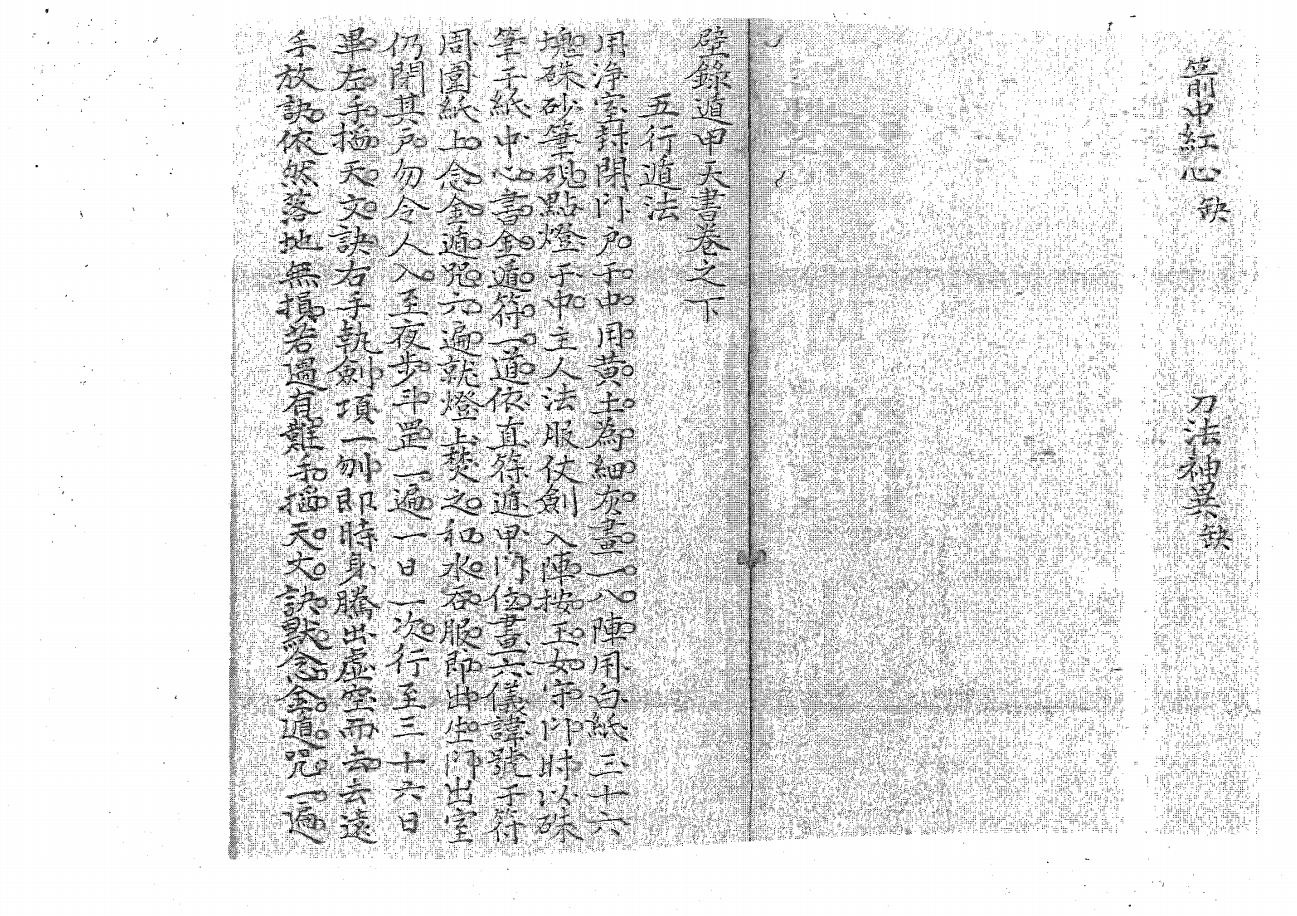 箭前中紅心 缺
刀法神異 缺
壁錄遁甲天書卷之下
五行遁法
用淨室封閉門戶于中用黃土為細灰畫一八陣用白紙三十六
塊硃砂筆硯點燈于中主人法服仗劍入陣按玉女守門時以硃
筆于紙中心書金遁符一道依直符遁甲門位畫六儀諱號于符
周圍紙上念金遁咒六遍就燈上焚之和水吞服即出生門出室
仍閉其戶勿令人入至夜步斗罡一遍一日一次行至三十六日
畢左手掐天文訣右手執劍項一刎即時身騰出虛空而去去遠
手放訣依然落地無損若遇有難手掐天文訣默念金遁咒一遍